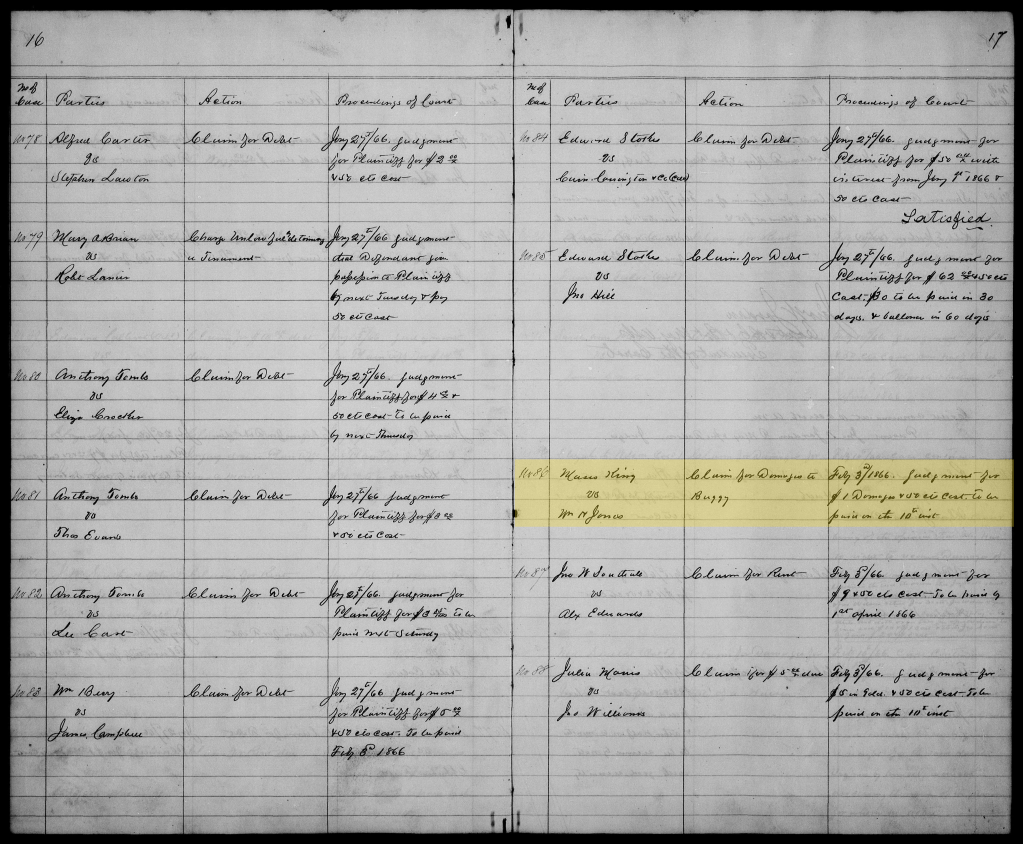 16
No of Case Parties Action Proceedings of Court
No 78 Alfred Carter Claim for Debt Jany 27th/66. Judgment
vs for Plaintiff for $2 00/
Stephen Lawton & 50 cts Cost
No 79 Mary O Brian Charge Unlawful detaining Jany 27th/66 Judgment
vs a Tenement that Defendant give
Robt Lanier possession to Plaintiff
by next Tuesday & pay
50 cts Cost
No 80 Anthony Tombs Claim for Debt Jany 27th/66. Judgment
vs for Plaintiff for $4 &
Eliza 50 cts Cost to be paid
by next Thursday
No 81 Anthony Tombs Claim for Debt Jany 27th/66 Judgment
vs for Plaintiff for $3 00/
Thos Evans & 50 cts Cost
No 82 Anthony Tombs Claim for Debt Jany 27th/66. Judgment for
vs Plaintiff for $3 to be
Lee paid next Saturday
No 83 Wm Berry Claim for Debt Jany 27th/66 Judgment
vs for Plaintiff for $5 00/
James Campbell & 50 cts Cost. To be paid
Feby 1866
17
No of Case Parties Action Proceedings of Court
No 84 Edward Stokes Claim for Debt Jany 27th/66. Judgment for
vs Plaintiff for $50 with
Cain & Co interest from Jany 1st 1866 &
50 cts Cost
Satisfied.
No 85 Edward Stokes Claim for Debt Jany 27th/66. Judgment for
vs Plaintiff for $62 & 50 cts
Jno Hill Cost. $30 to be paid in 30
days. & ballance in 60 days
No 86 Moses King Claim for Damage to Feby 3d/1866. Judgment for
vs Buggy $1 Damages & 50 cts Cost to be
Wm H Jones paid on the 10th inst
No 87 Jno W Southall Claim for Rent Feby 3d/66. Judgment for
vs $9 & 50 cts Cost To be paid by
Alex Edwards 1st April 1866
No 88 Julia Claim for $5 00/ due Feby 3d/66. Judgment for
vs $5 in Gold. & 50 cts Cost To be
Jno Williams paid on the 10th inst